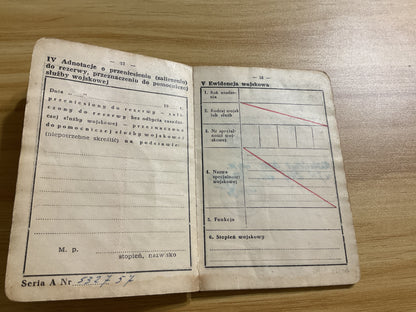 — 12 —
IV Adnotacje o przeniesieniu (zaliczeniu)
do rezerwy, przeznaczeniu do pomocniczej
służby wojskowej
Data 19 r.
przeniesiony do rezerwy – zali-
czony do rezerwy bez odbycia zasadni-
czej służby wojskowej – przeznaczony
do pomocniczej służby wojskowej
(niepotrzebne skreślić) na podstawie:
M. p.
stopień, nazwisko
Seria A Nr 532757
— 13 —
V Ewidencja wojskowa:
1. Rok urodze-
nia
2. Rodzaj wojsk
lub służb
3. Nr specjal-
ności woj-
skowej
4. Nazwa
specjalności
wojskowej
5. Funkcja
6. Stopień wojskowy